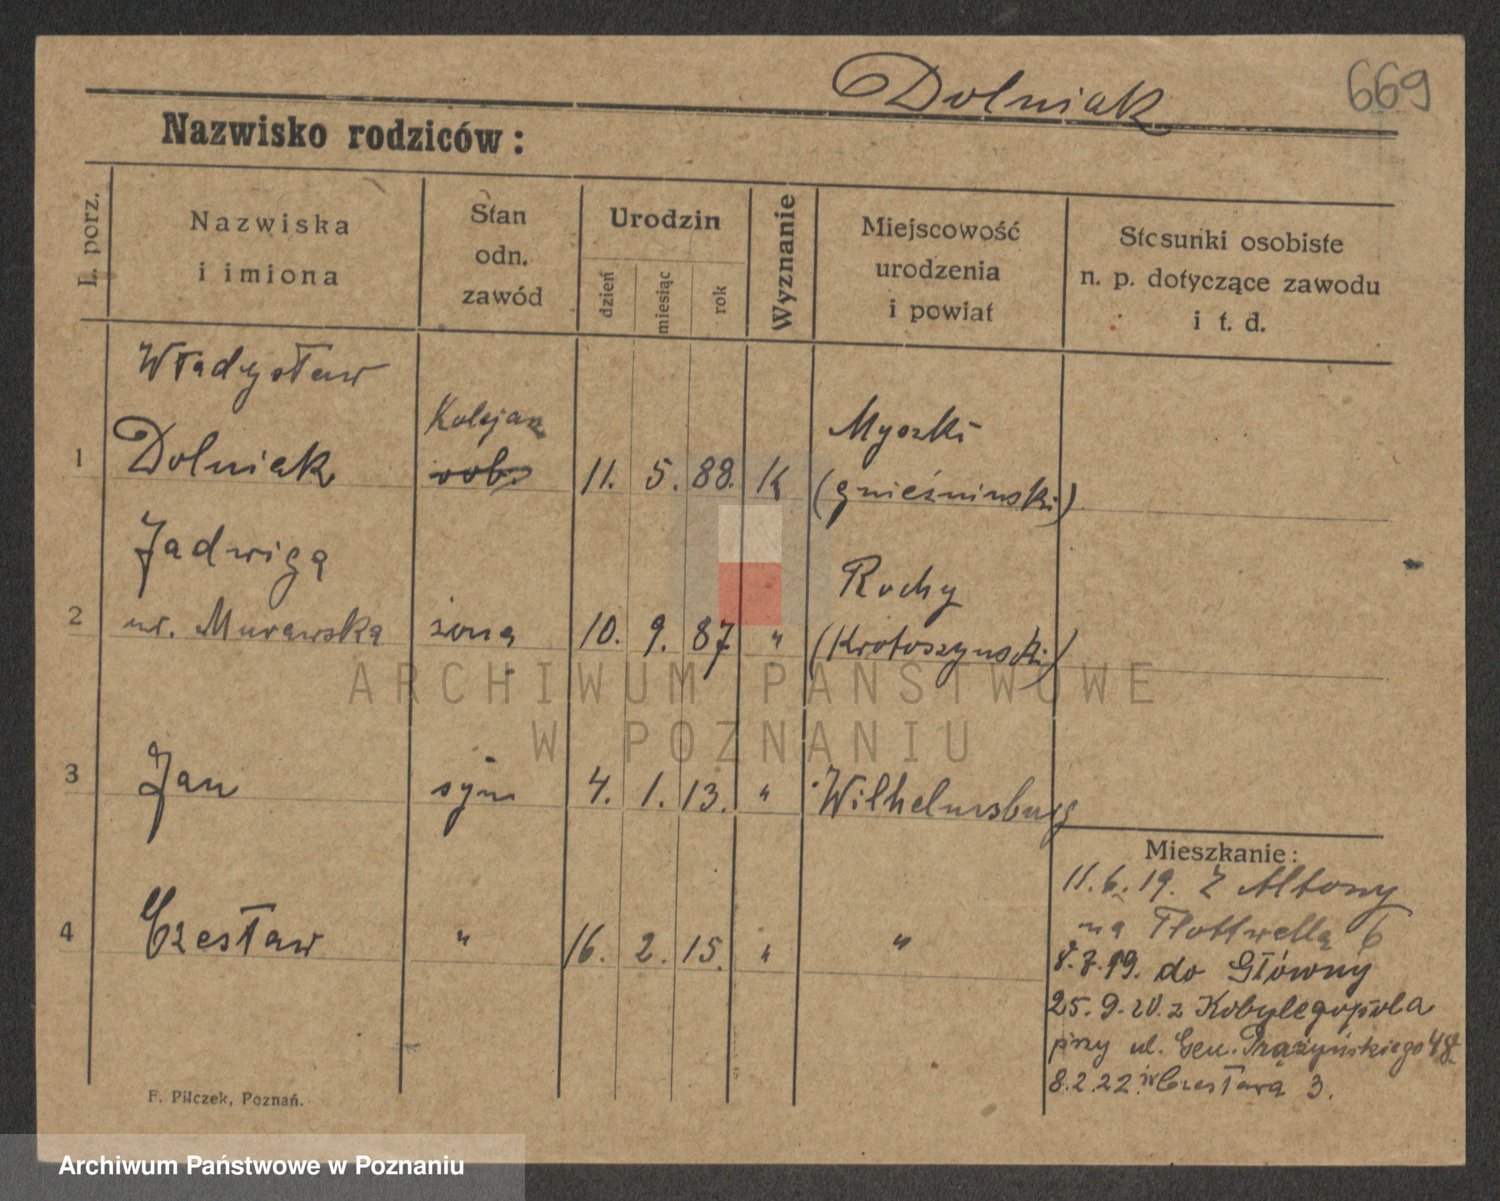 Dolniak
669
Nazwisko rodziców:
L. porz.
Nazwiska
i imiona
Stan
odn.
zawód
Urodzin
dzień
miesiąc
rok
Wyznanie
Miejscowość
urodzenia
i powiat
Stosunki osobiste
n. p. dotyczące zawodu
i t. d.
Władysław
Kolejarz
Myszki
1 Dolniak rob. 11. 5. 88. K (gnieźnieński)
Jadwiga
Rochy
2 ur. Murawska żona 10. 9. 87 " (Krotoszyński)
3 Jan syn 4. 1. 13. " Wilhelmsburg
4 Czesław " 16. 2. 15. " "
Mieszkanie:
11.6.19. z Altony
na Flottwella 6
8.7.19. do Główny
25.9.20. z Kobylegopola
przy ul. Gen. Prądzyńskiego 48
8.2.22. Czesława 3.
F. Pilczek, Poznań.
ARCHIWUM PAŃSTWOWE
W POZNANIU
Archiwum Państwowe w Poznaniu